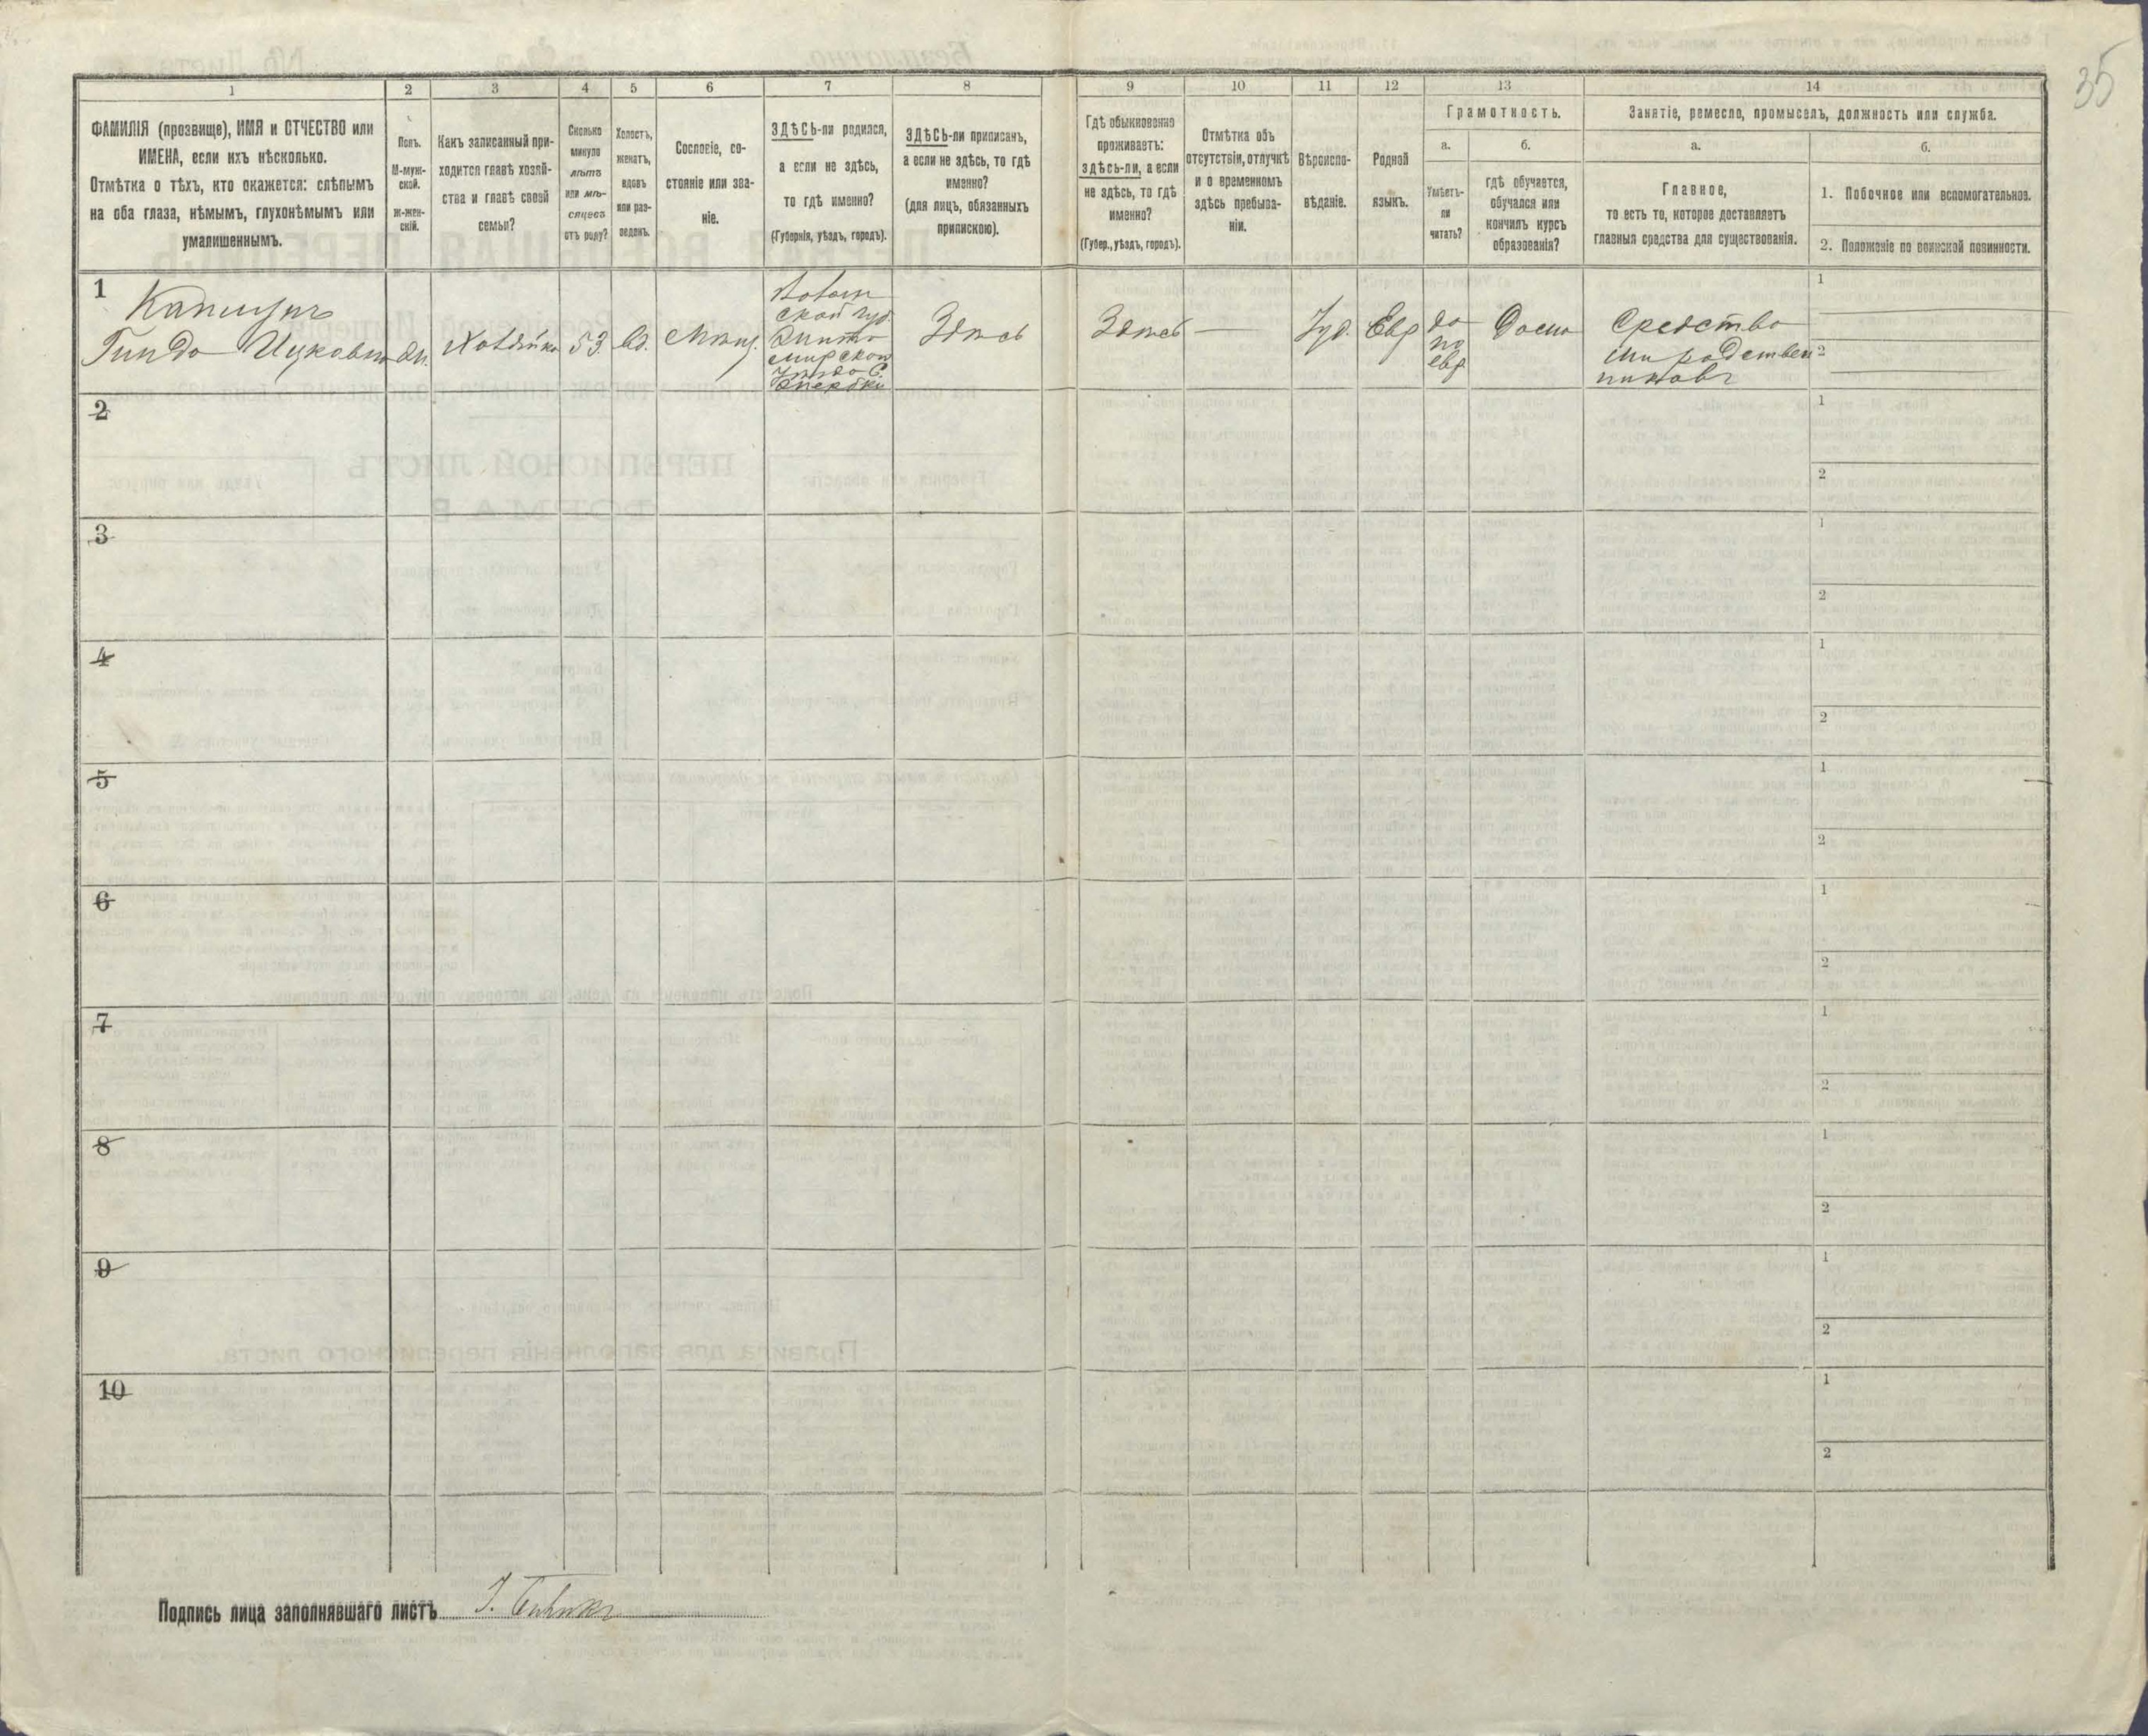 35
1
2
3
4
5
6
7
8
9
10
11
12
13
14
ФАМИЛІЯ (прозвище), ИМЯ и ОТЧЕСТВО или
ИМЕНА, если ихъ нѣсколько.
Отмѣтка о тѣхъ, кто окажется: слѣпымъ
на оба глаза, нѣмымъ, глухонѣмымъ или
умалишеннымъ.
Полъ.
М-муж-
ской.
Ж-жен-
скій.
Какъ записанный при-
ходится главѣ хозяй-
ства и главѣ своей
семьи?
Сколько
минуло
лѣтъ
или мѣ-
сяцевъ
отъ роду?
Холостъ,
женатъ,
вдовъ
или раз-
веденъ.
Сословіе, со-
стояніе или зва-
ніе.
ЗДѢСЬ-ли родился,
а если не здѣсь,
то гдѣ именно?
(Губернія, уѣздъ, городъ).
ЗДѢСЬ-ли приписанъ,
а если не здѣсь, то гдѣ
именно?
(для лицъ, обязанныхъ
припискою).
Гдѣ обыкновенно
проживаетъ:
здѣсь-ли, а если
не здѣсь, то гдѣ
именно?
(Губер., уѣздъ, городъ).
Отмѣтка объ
отсутствіи, отлучкѣ
и о временномъ
здѣсь пребыва-
ніи.
Вѣроиспо-
вѣданіе.
Родной
языкъ.
Грамотность.
а.
Умѣетъ-
ли
читать?
б.
гдѣ обучается,
обучался или
кончилъ курсъ
образованія?
Занятіе, ремесло, промыселъ, должность или служба.
а.
Главное,
то есть то, которое доставляетъ
главныя средства для существованія.
б.
1. Побочное или вспомогательное.
2. Положеніе по воинской повинности.
1
Гинда Ицковна
Хозяйка
53
Вд.
Мѣщ.
Ковен
ской губ.
Здѣсь
Здѣсь —
Іуд.
Евр
да
по
евр
Дома
Средства
родствен
никовъ
1
2
2
1
2
3
1
2
4
1
2
5
1
2
6
1
2
7
1
2
8
1
2
9
1
2
10
1
2
Подпись лица заполнявшаго листъ